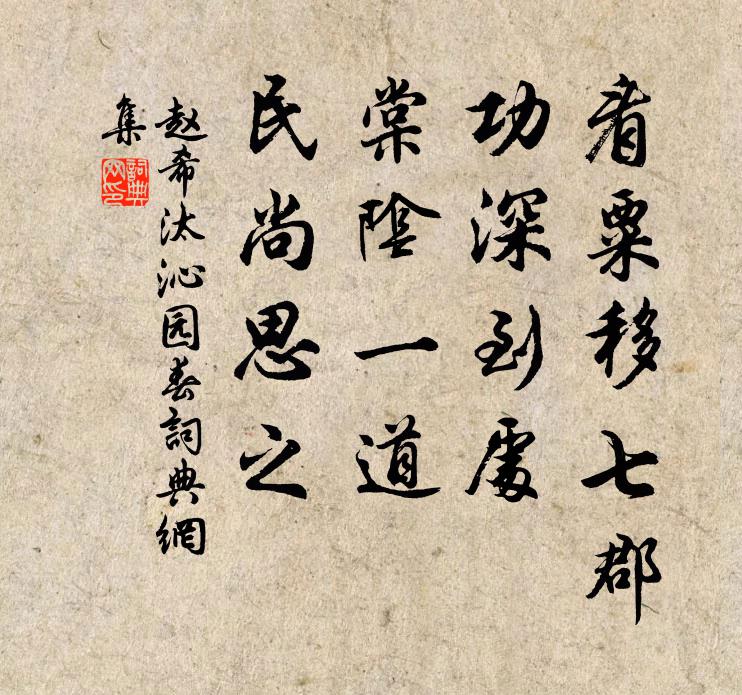 看粟移七郡
功深到處
棠陰一道
民尚思之
赵希汰沁园春詞典網
集
詞典網印